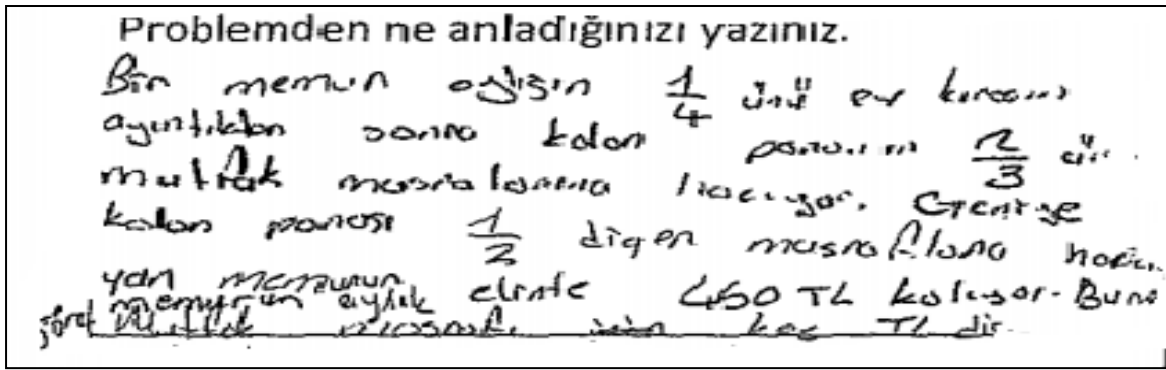 Problemden ne anladığınızı yazınız.
Bir memur aylığın 1/4 ünü ev kirasını
ayırdıktan sonra kalan paranın 2/3 ü
mutfak masraflarına harcıyor. Geriye
kalan parası 1/2 diğer masraflara harcı
yan memurun elinde 450 TL kalıyor. Buna
göre memurun aylık mutfak masrafı için kaç TL dir